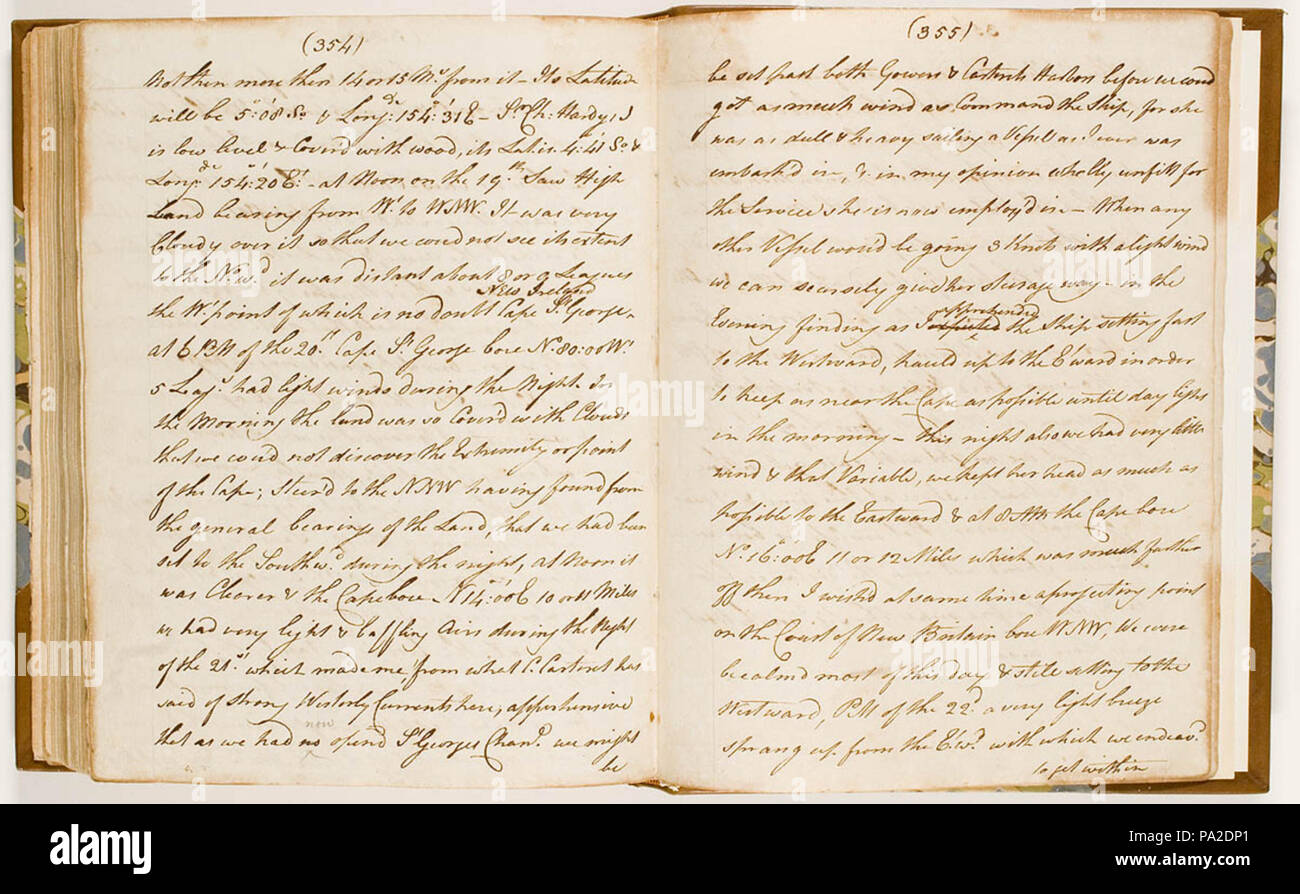 (354)
Not then more then 14 or 15 Ms. from it – Its Latitude
will be 5°:08' So. & Longde: 154°:31' E – Sr. Ch: Hardys I
is low level & Cover'd with wood, its Lat. is 4:41 So. &
Longde. 154°:20' Et. – at Noon on the 19th. Saw High
Land bearing from Wt. to WNW. It was very
Cloudy over it so that we could not see its extent
to the No.wd. it was distant about 8 or 9 Leagues
New Ireland
the Wt. point of which is no doubt Cape St. George,
at 6 PM of the 20th. Cape St. George bore No. 80:00 Wt.
5 Leags. had light winds during the Night. In
the Morning the land was so Cover'd with Clouds
that we could not discover the Extremity or point
of the Cape; Steer'd to the NNW having found from
the general bearings of the Land, that we had been
set to the Southwd. during the night, at Noon it
was Clearer & the Cape bore N 14°:00' E 10 or 11 Miles
we had very light & baffling Airs during the Night
of the 21st. which made me from what C. Carteret has
said of strong Westerly Currents here, apprehensive
now
that as we had no open'd St Georges Chanl. we might
be
(355)
be set past both Gowers & Carterets Harbor before we coud
get as much wind as Command the Ship, for she
was as dull & heavy sailing a Vessel as I ever was
embark'd in, & in my opinion wholly unfitt for
the Service she is now employ'd in – When any
other Vessel would be going 3 Knots with a light wind
we can scarsely give her stearage way – in the
apprehended
Evening finding as I expected the Ship setting fast
to the Westward, hauld up to the Et.ward in order
to keep as near the Cape as possible until day light
in the morning – this night also we had very little
wind & that Variable, we kept her head as much as
possible to the Eastward & at 8 AM the Cape bore
No. 16°:00 E 11 or 12 Miles which was much farther
off then I wish'd at same time a projecting point
on the Coast of New Britain bore WNW, We were
becalmd most of this day & still setting to the
Westward, PM of the 22d. a very light breeze
sprang up from the Et.wd. with which we endeavd.
to get within
alamy
Image ID: PA2DP1
www.alamy.com